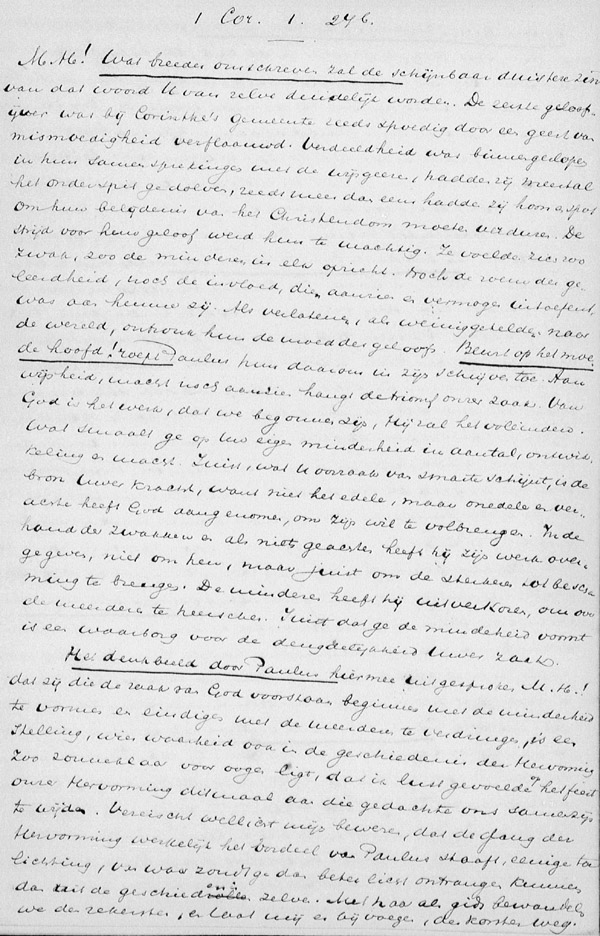 1 Cor. 1. 27b.
M.H.! Wat breeder omschreven zal de schijnbaar duistere zin
van dat woord U van zelve duidelijk worden. De eerste geloofs-
ijver was bij Corinthe's gemeente reeds spoedig door een geest van
mismoedigheid verflaauwd. Verdeeldheid was binnengeslopen
in hun samensprekingen met de wijsgeeren, hadden zij meestal
het onderspit gedolven, reeds meer dan eens hadden zij hoon en spot
om hun belijdenis van het Christendom moeten verduren. De
strijd voor hun geloof werd hun te machtig. Ze voelden zich zoo
zwak, zoo de minderen in elk opzicht. Noch de roem der ge-
leerdheid, noch de invloed, dien aanzien en vermogen uitoefent,
was aan hunne zij. Als verlatenen, als weiniggetelden naar
de wereld, ontzonk hun de moed des geloofs. Beurt op het moe-
de hoofd! roept Paulus hun daarom in zijn schrijven toe. Aan
wijsheid, macht noch aanzien hangt de triomf onzer zaak. Van
God is het werk, dat we begonnen zijn, Hij zal het volleinden.
Wat smaalt ge op Uw eigen minderheid in aantal, ontwik-
keling en macht. Juist, wat U oorzaak van smarte schijnt, is de
bron Uwer kracht, want niet het edele, maar onedele en ver-
achte heeft God aangenomen, om zijn wil te volbrengen. In de
hand der zwakken en als niets geachten heeft hij zijn werk over-
gegeven, niet om hen, maar juist om de sterkeren tot bescha-
ming te brengen. De minderen heeft hij uitverkoren, om over
de meerderen te heerschen. Juist dat ge de minderheid vormt
is een waarborg voor de deugdelijkheid Uwer zaak.
Het denkbeeld door Paulus hiermee uitgesproken M.H.!
dat zij die de zaak van God voorstaan beginnen met de minderheid
te vormen en eindigen met de meerderen te verdringen, is een
stelling, wier waarheid ook in de geschiedenis der Hervorming
zoo zonneklaar voor oogen ligt, dat ik lust gevoelde op het feest
onzer Hervorming ditmaal aan die gedachte ons samenzijn
te wijden. Vereischt wellicht mijn beweren, dat de gang der
Hervorming werkelijk het oordeel van Paulus staaft, eenige toe-
lichting, van waar zoudt ge dan beter licht ontvangen kunnen
dan uit de geschiedenis zelve. Met haar als gids bewandelen
we den zekersten, en laat mij er bij voegen, den korsten weg.